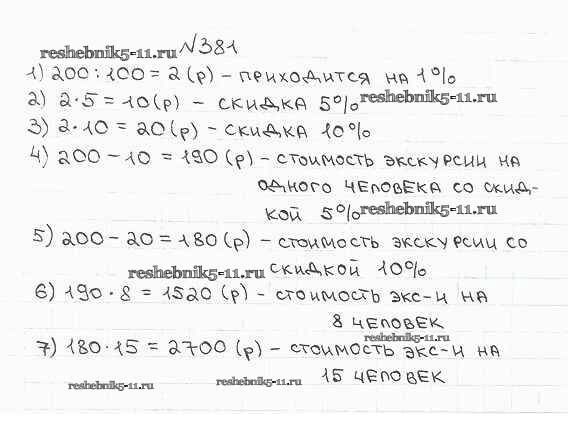 reshebnik5-11.ru №381
1) 200 : 100 = 2 (р) – приходится на 1%
2) 2·5 = 10 (р) – скидка 5% reshebnik5-11.ru
3) 2·10 = 20 (р) – скидка 10%
4) 200 – 10 = 190 (р) – стоимость экскурсии на
одного человека со скид-
кой 5% reshebnik5-11.ru
5) 200 – 20 = 180 (р) – стоимость экскурсии со
reshebnik5-11.ru скидкой 10%
6) 190 · 8 = 1520 (р) – стоимость экс-и на
8 человек
reshebnik5-11.ru
7) 180 · 15 = 2700 (р) – стоимость экс-и на
15 человек
reshebnik5-11.ru reshebnik5-11.ru